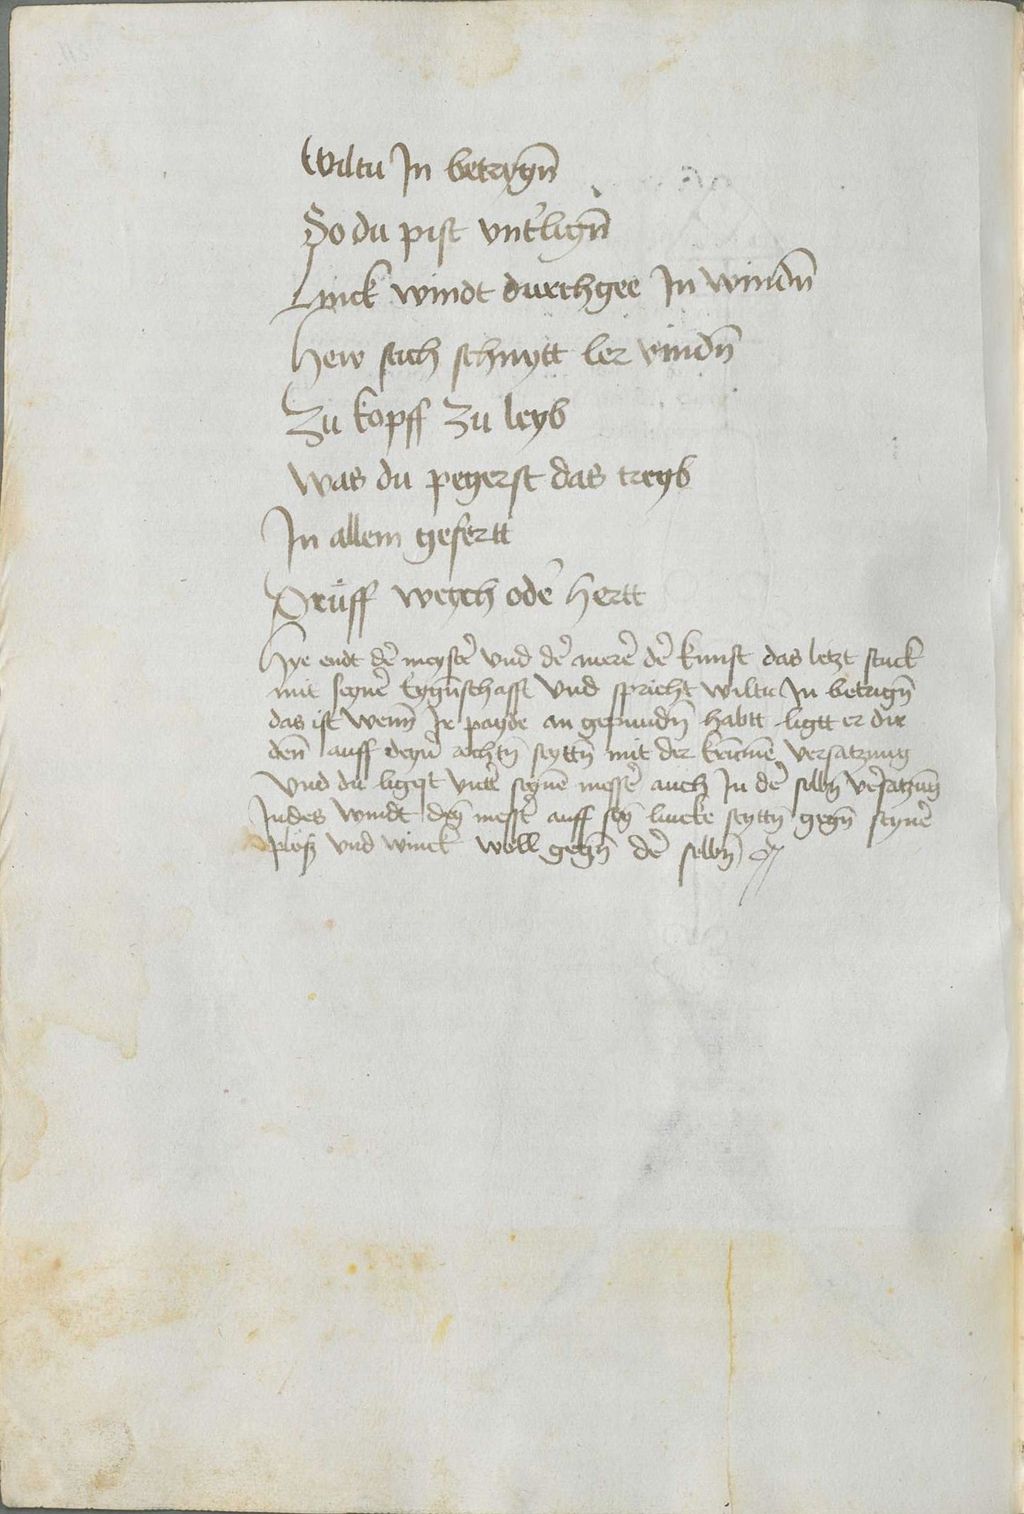 Wiltu Jn betrygn̄
So du pist vnt'lign̄
Linck windt durchgee Jn windn̄
Hew stich schnytt ler vindn̄
Zu kopff zu leyb
Was du pegerst das treyb
Jn allem gefertt
Prüff weych ode' hertt
Hye endt de' meyste' vnd de' merē de' kunst das letzt stuck
mit seyne' Eygn̄schafft Vnd spricht wiltu Jn betrign̄
das ist wenn̄ Jr payde an gepundn̄ habtt ligtt er dir
den̄ auff deyn̄ rechtn̄ seyttn̄ mit der krūmē versatzung
Vnd du ligst Vnte' seynē messe' auch Jn de' selbn̄ ve'satzūg
Jndes windt deyn̄ messe' auff sey̅ lincke seyttn̄ gegn̄ seyne'
plöß vnd winck woll gegn̄ de' selbn̄